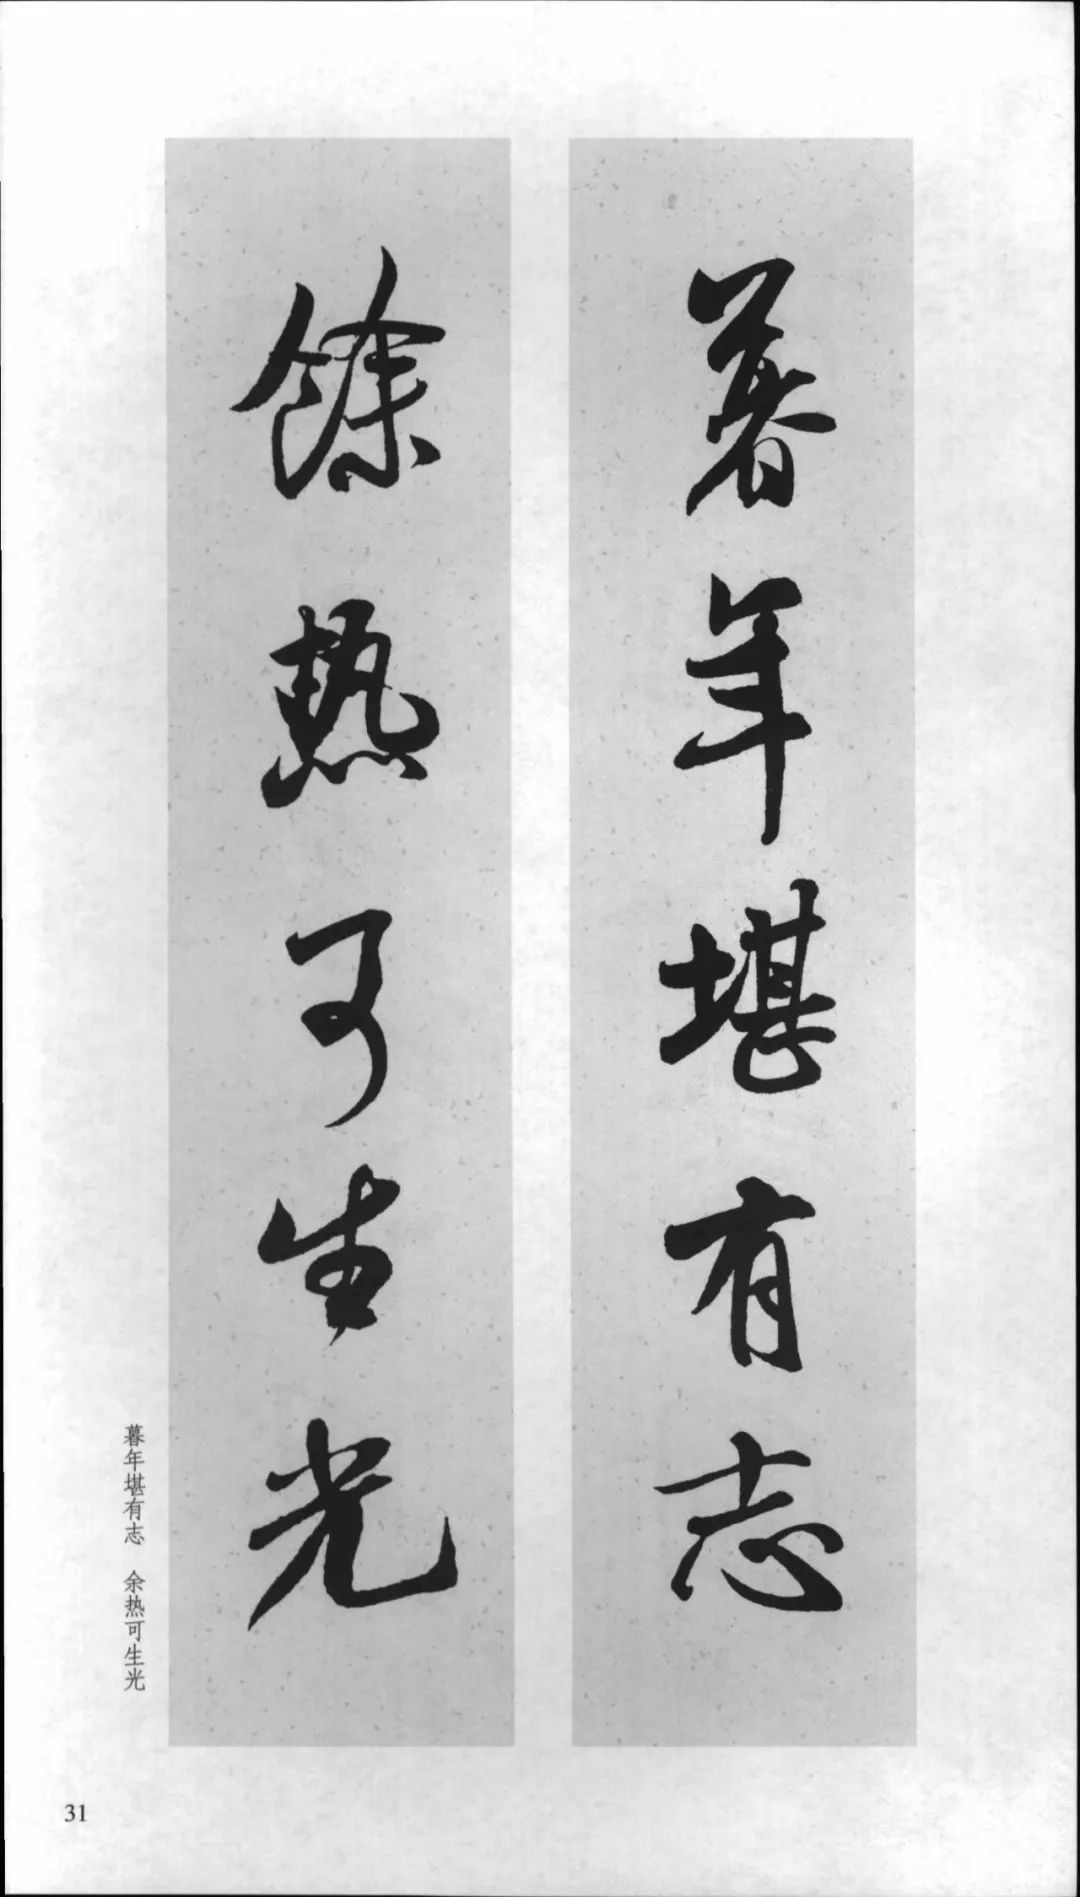 暮年堪有志
餘热可生光
暮年堪有志 余热可生光
31